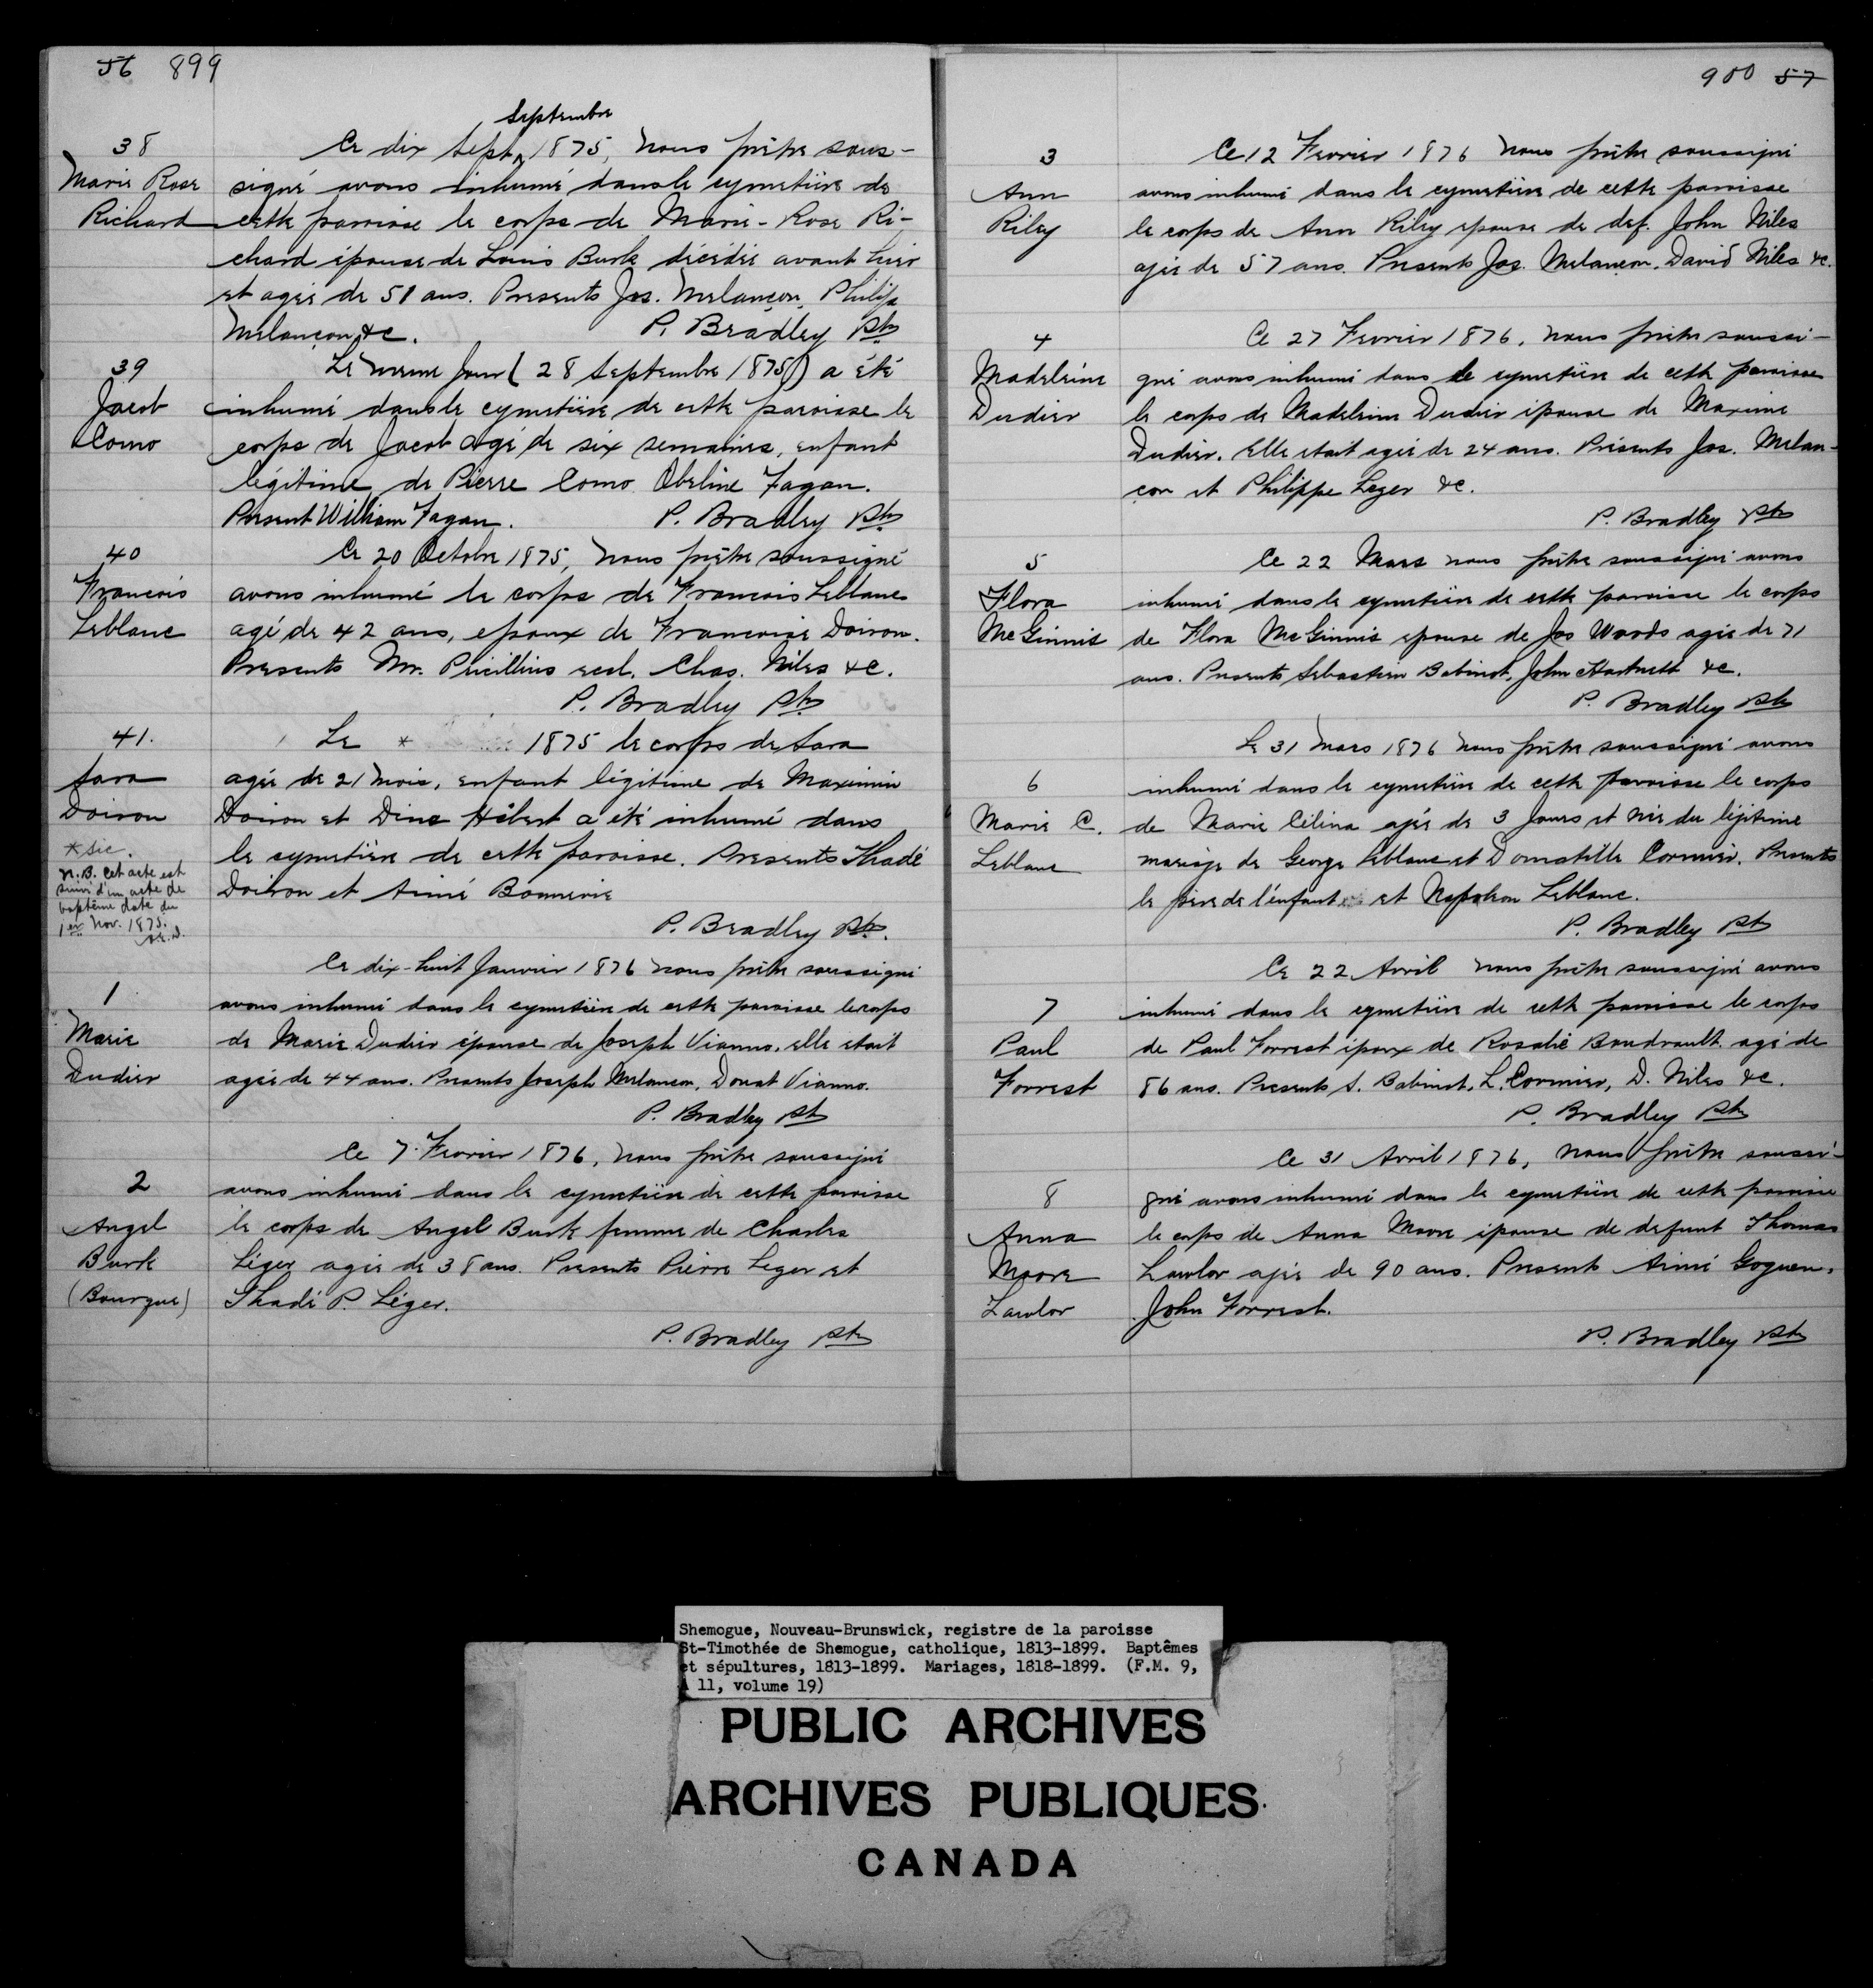 56 899
Septembre
38
Marie Rose
Richard
Ce dix Sept. 1875, nous prêtre sous-
signé avons inhumé dans le cymetière de
cette paroisse le corps de Marie-Rose Ri-
chard épouse de Louis Burk décédée avant hier
et agée de 51 ans. Presents Jos. Melançon, Philip
Melançon &c. P. Bradley Ptr
39
Jacob
Como
Le meme jour (28 Septembre 1875) a été
inhumé dans le cymetière de cette paroisse le
corps de Jacob agé de six semaines, enfant
légitime de Pierre Como Obeline Fagan.
Present William Fagan. P. Bradley Ptr
40
Francois
Leblanc
Ce 20 Octobre 1875, nous prêtre soussigné
avons inhumé le corps de Francois Leblanc
agé de 42 ans, epoux de Francoise Doiron.
Presents Mr. eccl. Chas. Niles &c.
P. Bradley Ptr
41.
Sara
Doiron
*sic.
N.B. Cet acte est
suivi d'un acte de
baptême daté du
1er Nov. 1875.
Le * 1875 le corps de Sara
agée de 21 mois, enfant légitime de Maximin
Doiron et Dine Hébert a été inhumé dans
le cymetière de cette paroisse. Presents Thadé
Doiron et Aimé
P. Bradley Ptr.
1
Marie
Dudier
Ce dix-huit Janvier 1876 nous prêtre soussigné
avons inhumé dans le cymetière de cette paroisse le corps
de Marie Dudier épouse de Joseph Vianno. elle etait
agée de 44 ans. Presents Joseph Melancon, Donat Vianno.
P. Bradley Pt
2
Angel
Burk
(Bourque)
Ce 7 Fevrier 1876, nous prêtre soussigné
avons inhumé dans le cymetière de cette paroisse
le corps de Angel Burk femme de Charles
Léger agée de 38 ans. Presents Pierre Leger et
Thadé P. Léger.
P. Bradley Ptr
900 57
3
Ann
Riley
Ce 12 Fevrier 1876 nous prêtre soussigné
avons inhumé dans le cymetière de cette paroisse
le corps de Ann Riley epouse de def. John Niles
agée de 57 ans. Presents Jos. Melançon, David Niles &c.
4
Madeleine
Dudier
Ce 27 Fevrier 1876, nous prêtre soussi-
gné avons inhumé dans le cymetière de cette paroisse
le corps de Madeleine Dudier épouse de Maxime
Dudier. Elle etait agée de 24 ans. Présents Jos. Melan-
çon et Philippe Leger &c.
P. Bradley Ptr
5
Flora
McGinnis
Ce 22 Mars nous prêtre soussigné avons
inhumé dans le cymetière de cette paroisse le corps
de Flora McGinnis epouse de Jos Woods agée de 71
ans. Presents Sebastien Babinot, John Hartnett &c.
P. Bradley Ptr
6
Marie C.
Leblanc
Le 31 Mars 1876 nous prêtre soussigné avons
inhumé dans le cymetière de cette paroisse le corps
de Marie Célina agée de 3 jours et née du légitime
mariage de George Leblanc et Domatille Cormier. Presents
le père de l'enfant et Napoleon Leblanc.
P. Bradley Pt
7
Paul
Forrest
Ce 22 Avril nous prêtre soussigné avons
inhumé dans le cymetière de cette paroisse le corps
de Paul Forrest époux de Rosalie Boudrault agé de
86 ans. Presents S. Babinot, L. Cormier, D. Niles &c.
P. Bradley Ptr
8
Anna
Moore
Lawlor
Ce 31 Avril 1876, nous prêtre soussi-
gné avons inhumé dans le cymetière de cette paroisse
le corps de Anna Moore épouse de defunt Thomas
Lawlor agée de 90 ans. Present Aimé Goguen,
John Forrest.
P. Bradley Ptr
Shemogue, Nouveau-Brunswick, registre de la paroisse
St-Timothée de Shemogue, catholique, 1813-1899. Baptêmes
et sépultures, 1813-1899. Mariages, 1818-1899. (F.M. 9,
11, volume 19)
PUBLIC ARCHIVES
ARCHIVES PUBLIQUES
CANADA